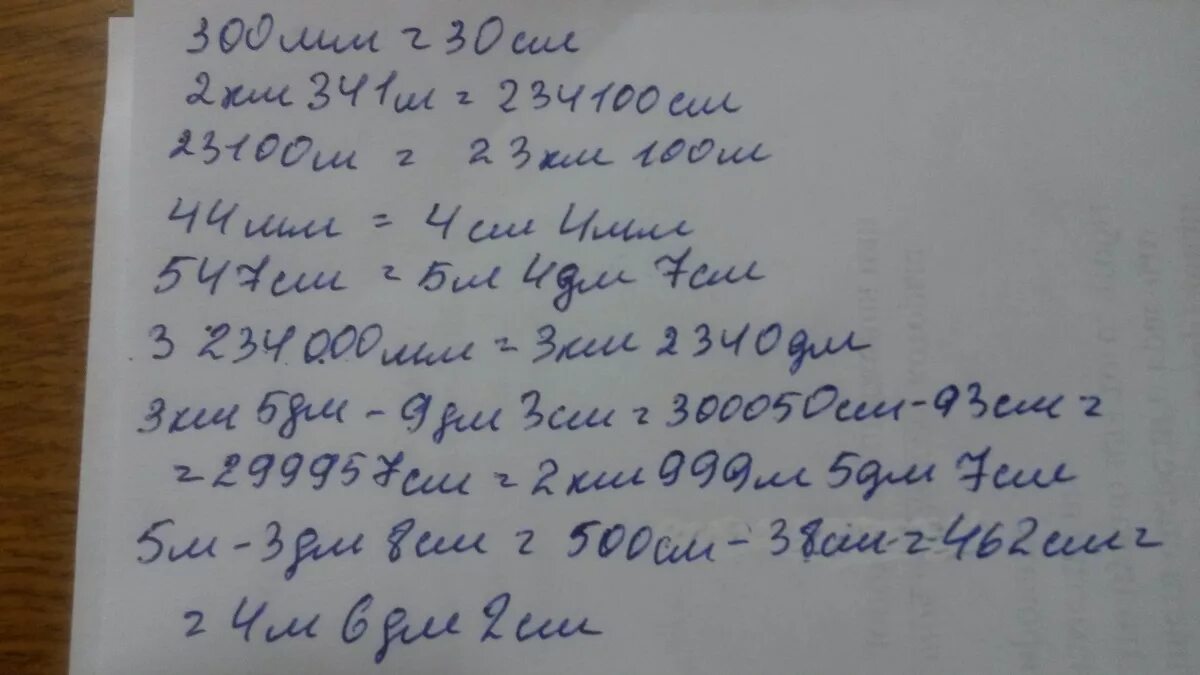 300мм = 30см
2км 341м = 234100см
23100м = 23км 100м
44мм = 4см 4мм
547см = 5м 4дм 7см
3 234 000мм = 3км 2340дм
3км 5дм - 9дм 3см = 300050см - 93см =
= 299957см = 2км 999м 5дм 7см
5м - 3дм 8см = 500см - 38см = 462см =
= 4м 6дм 2см